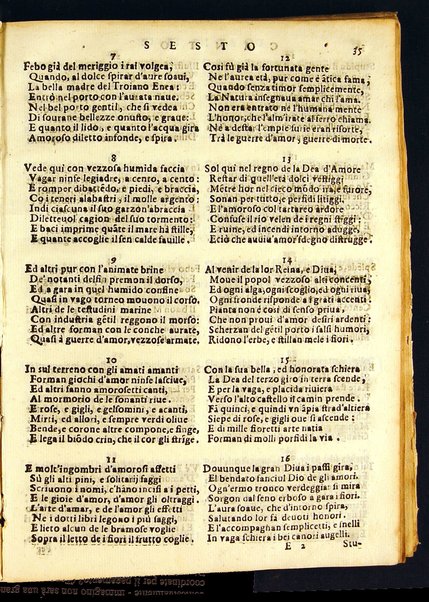 SESTO. 35
7
Febo già del meriggio i rai volgea,
Quando, al dolce spirar d'aure soaui,
La bella madre del Troiano Enea:
Entrò nel porto con l'aurata naue.
Nel bel porto gentil, che si vedea
Di sourane bellezze onusto, e graue:
E quanto il lido, e quanto l'acqua gira
Amoroso diletto infonde, e spira.
8
Vede qui con vezzosa humida faccia
Vagar ninfe legiadre, a cento, a cento:
E romper dibattédo, e piedi, e braccia,
Co i teneri alabastri, il molle argento:
Indi ciascuna il suo garzon'abraccia
Diletteuol cagion del suo tormento:
E baci imprime quãte il mare hà stille,
E quante accoglie il sen calde fauille.
9
Ed altri pur con l'animate brine
De' notanti delfin premon il dorso,
Ed a gara in quel humido confine
Quasi in vago torneo mouono il corso.
Altri de le testudini marine
Con industria gētil reggono il morso,
Ed altre forman con le conche aurate,
Quasi à guerre d'amor, vezzose armate.
10
In sul terreno con gli amati amanti
Forman giochi d'amor ninfe lasciue,
Ed altri fanno amorosetti canti,
Al mormorio de le sonanti riue.
E rose, e gigli, e gelsomini, e acanti,
Mirti, ed allori, e sempre verdi oliue
Bende, e corone altre compone, e finge,
E lega il biõdo crin, che il cor gli strige.
11
E molt'ingombri d'amorosi affetti
Sù gli alti pini, e solitarij faggi
Scriuono i nomi, c'hãno incisi a i petti,
E le gioie d'amor, d'amor gli oltraggi.
L'arte d'amar, e d'amor gli effetti
Ne i dotti libri legono i più saggi,
E lieto alcun de le bramose voglie
Sopra il letto de i fiori il frutto coglie.
12
Così fù già la fortunata gente
Ne l'aurea età, pur come è ãtica fama,
Quando senza timor semplicemente,
La Natura insegnaua amar chi s'ama.
Non era entrato ne l'humana mente
L'honor, che l'alm'irate al ferro chiama,
Nè a destar l'empie furie eran risorte,
Trà le guerre d'amor, guerre di morte.
13
Sol qui nel regno de la Dea d'Amore
Restar di quell'età dolci vestiggi;
Mētre hor nel cieco mõdo ira, e furore,
Sonan per tutto, e perfidi litiggi.
E l'amoroso col tartareo ardore
Confuse il rio velen de i regni stiggi:
E ruine, ed incendi intorno adugge,
E ciò che auuia amor sdegno distrugge.
14
Al venir de la lor Reina, e Diua,
Moue il popol vezzoso alti concenti,
Ed ogni alga, ogni scoglio, ed ogni riua,
Ogni fronde risponde a i grati accenti:
Pianta non è così di senso priua,
Che non proui d'amor desiri ardenti:
Scherzan del gētil porto i salsi humori,
Ridono l'erbe, e stillan mele i fiori.
15
Con la sua bella, ed honorata schiera
La Dea del terzo giro in terra scende,
E per la vaga, e placida riuiera
Verso l'alto castello il camin prende.
Fà quinci, e quindi vn ãpia strad'altiera
Siepe di rose, e gigli oue si ascende:
E di mille fioretti arte natia
Forman di molli porfidi la via.
16
Douunque la gran Diua i passi gira,
El bendato fanciul Dio de gli amori.
Ogn'ermo tronco verdeggia: si mira
Sorgon dal seno erboso a gara i fiori.
L'aura soaue, che d'intorno spira,
Salutando lor fà deuoti honori.
E l'accompagnan semplicetti, e snelli
In vaga schiera i bei canori augelli.
E 2 Stu-